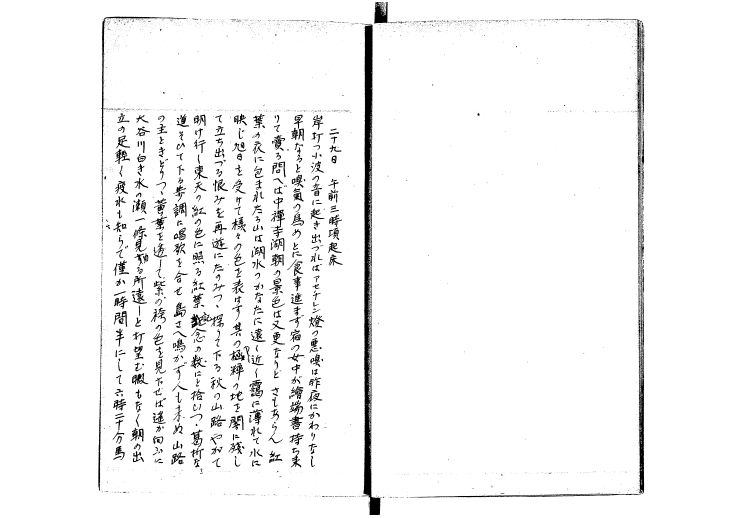 二十九日 午前三時頃起床
岸打つ小波の音に起き出づればアセチレン燈の悪嗅は昨夜にかわりなし
早朝なると嗅氣の為めとに食事進まず宿の女中が繪端書持ち来
りて賣る問へば中禪寺湖朝の景色は又更なりと さもあらん 紅
葉の衣に包まれたる山は湖水のかなたに遠く近く靄に薄れて水に
映じ旭日を受けて様々の色を表はす其の極粹の地を闇に残し
て立ち出づる恨みを再遊にたのみつゝ探りて下る秋の山路 やがて
明け行く東天の紅の色に照る紅葉 念の数にと拾いつゝ葛折な
道そひて下る歩調に唱歌を合せ 鳥さへ鳴かず人も未ぬ山路
の主ときどりつゝ黄葉を透して紫の袴の色を見たせば遥か向ふに
大谷川白き水の瀬一條見ゆる所遠しと打望む暇もなく朝の出
立の足軽く疲れも知らで僅か一時間半にして六時二十分馬